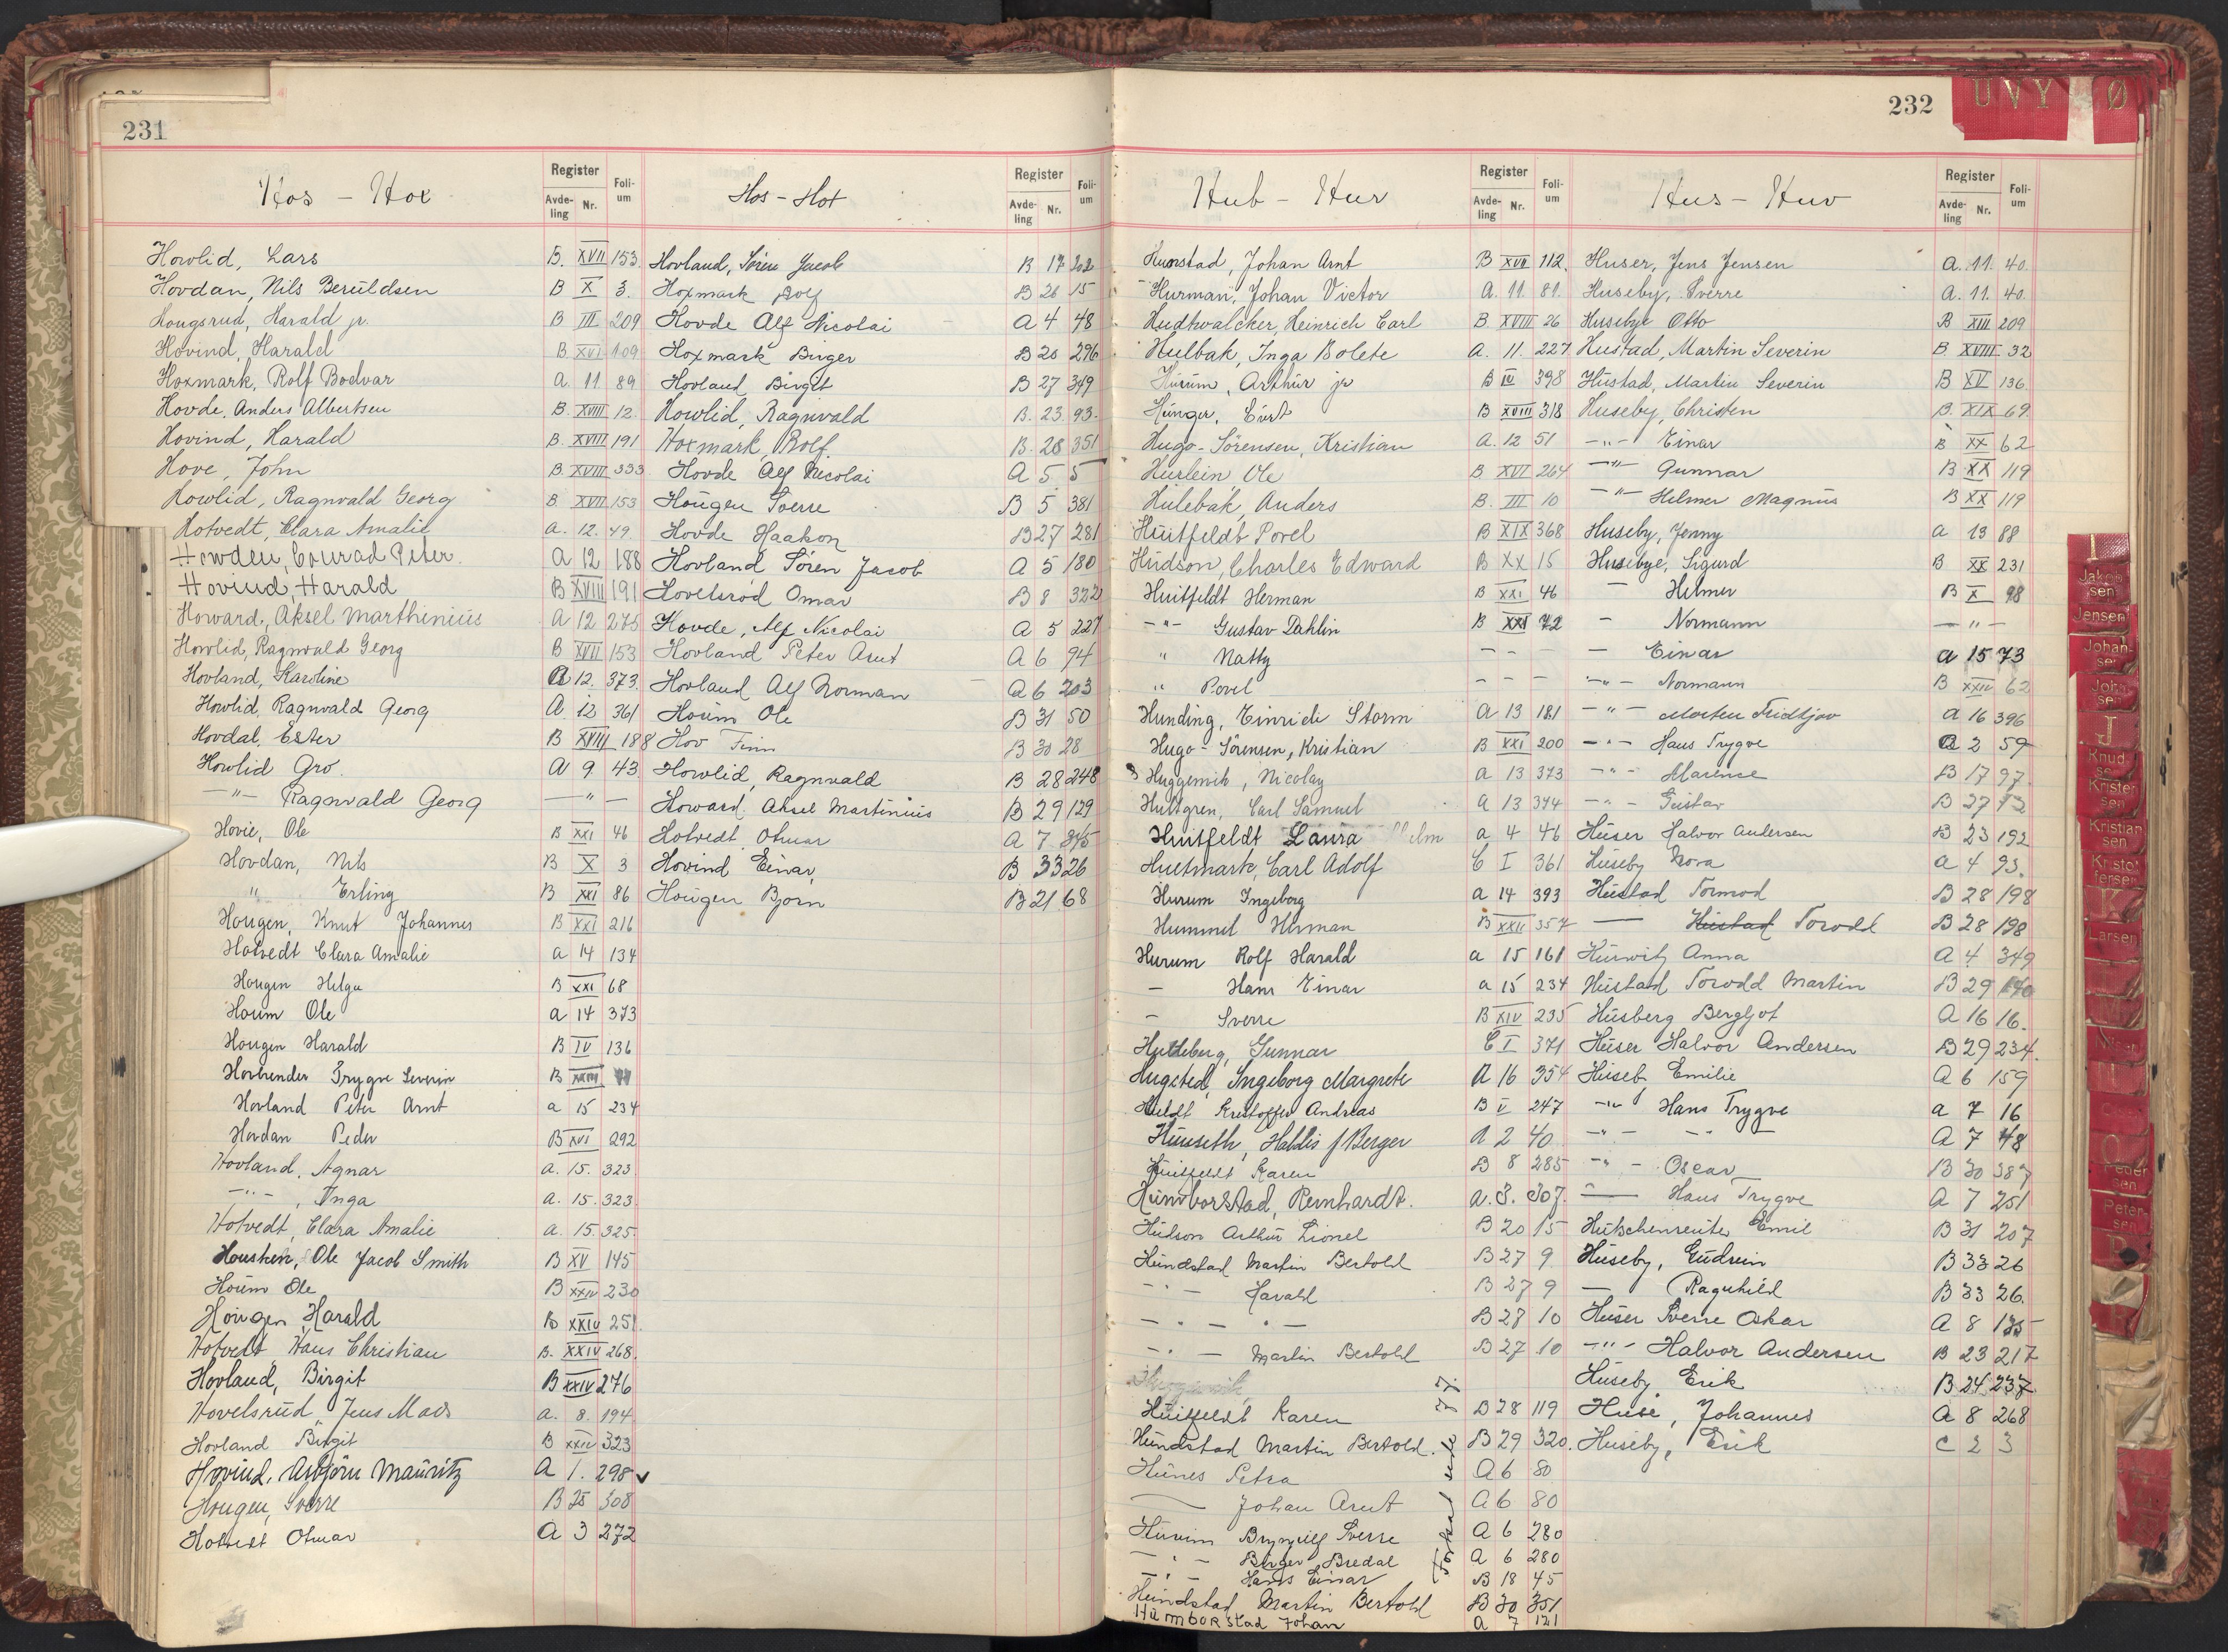 231
Hos – Hox
Register
Avde-ling Nr.
Foli-um
Howlid, Lars B. XVII 153
Hovdan, Nils Beruldsen B X 3.
Hougsrud, Harald jr. B III 209
Hovind, Harald B. XVI 109
Hoxmark, Rolf Bodvar A. 11 89
Hovde, Anders Albertsen B. XVIII 12
Hovind, Harald B. XVIII 191
Hove, John B XVIII 333
Howlid, Ragnvald Georg B XVII 153
Hotvedt, Clara Amalie A. 12. 49.
Howden, Conrad Peter. A 12 188
Hovind, Harald B XVIII 191
Howard, Aksel Marthinius A 12 275
Howlid, Ragnvald Georg B XVII 153
Hovland, Karoline A 12. 373
Howlid, Ragnvald Georg A. 12 361
Hovdal, Ester B XVIII 188
Howlid Gro. A 9 43
—"— Ragnvald Georg —"—
Hovie, Ole B XXI 46
Hovdan, Nils B X 3
" Erling B XXI 86
Hougen, Knut Johannes B XXI 216
Hotvedt Clara Amalie a 14 134
Hougen Helga B XXI 68
Houm Ole a 14 373
Hougen Harald B IV 136
Trygve Severin B XXIII
Hovland Peter Arnt a 15 234
Hovdan Peder B XVI 292
Hovland, Agnar a. 15. 323
—"—, Inga a. 15. 323.
Hotvedt, Clara Amalie a. 15. 325.
Housken, Ole Jacob Smith B XV 145
Houm Ole B XXIV 230
Hougen, Harald B XXIV 251.
Hotvedt Hans Christian B. XXIV 268.
Hovland, Birgit B XXIV 276
Hovelsrud, Jens Mads a. 8. 194
Hovland Birgit B XXIV 323
Hovind, Asbjørn Mauritz A 1. 298 ✓
Hougen, Sverre B 25 308
Hotvedt Otmar A 3 272
Hos – Hot
Register
Avde-ling Nr.
Foli-um
Hovland, Sören Jacob B 17 202
Hoxmark Rolf B 26 15
Hovde Alf Nicolai A 4 48
Hoxmark Birger B 20 296
Hovland, Birgit B 27 349
Howlid, Ragnvald B. 23. 93.
Hoxmark, Rolf. B. 28 351
Hovde Alf Nicolai A 5 5
Hougen Sverre B 5 381
Hovde Haakon B 27 281
Hovland Sören Jacob A 5 180
Hovelsrød Omar B 8 322
Hovde, Alf Nicolai A 5 227
Hovland Peter Arnt A 6 94
Hovland Alf Norman A 6 203
Houm Ole B 31 50
Hov Finn B 30 28
Howlid, Ragnvald B 28 248
Howard, Aksel Martinius B 29 129
Hotvedt, Otmar A 7 245
Hovind Einar, B 33 26
Hougen Bjorn B 21 68
232
U V Y Ø
Hub – Hur
Register
Avde-ling Nr.
Foli-um
Hunstad, Johan Arnt B XVII 112.
Hurman, Johan Victor A. 11 81.
Hudtwalcker, Heinrich Carl B XVIII 26
Hulbak, Inga Bolete A. 11. 227
Hurum, Arthur jr B IV 398
Hunger, Curt B XVIII 318
Hugo-Sörensen, Kristian A. 12 51
Hurlein Ole B XVI 264
Hulebak, Anders B. III 10
Huitfeldt Povel B XIX 368
Hudson, Charles Edward B XX 15
Huitfeldt Herman B XXI 46
—"— Gustav Dahlin B XXI 72
" Natty — — —
" Povel — — —
Hunding, Einride Storm A 13 181
Hugo-Sörensen, Kristian B XXI 200
Huggenvik, Nicolay A 13 373
Hultgren, Carl Samuel A 13 374
Huitfeldt Laura a 4 46
Hultmark, Carl Adolf C I 361
Hurum Ingeborg a 14 393
Hummel Herman B XXII 357
Hurum Rolf Harald a 15 161
— Hans Einar a 15 234
— Sverre B XIV 235
Gunnar C I 371
Hugsted, Ingeborg Margrete A 16 354
Huldt Kristoffer Andreas B V 247
Hunseth, Halldis f. Berger A 2 40
Huitfeldt Karen B 8 285
Humborstad, Reinhardt. A. 3. 307.
Hudson Arthur Lionel B 20 15
Hundstad Martin Bertold B 27 9
—"— Harald B 27 9
— " — " — B 27 10
—"— Martin Bertold B 27 10
Huitfeldt Karen B 28 119
Hundstad Martin Bertold. B 29 320.
Hunes Petra A 6 80
— Johan Arnt A 6 80
Hurum Brynjulf Sverre A 6 280
—"— Birger Bredal A 6 280
—"— Hans Einar B 18 45
Hundstad Martin Bertold B 30 351
Humborstad Johan A 7 121
Hus – Huv
Register
Avde-ling Nr.
Foli-um
Huser, Jens Jensen A. 11. 40.
Huseby, Sverre A. 11. 40.
Husebye Otto B XIII 209
Hustad, Martin Severin B. XVIII 32
Hustad, Martin Severin B XV 136.
Huseby, Christen B. XIX 69
—"— Einar B XX 62
—"— Gunnar B XX 119
—"— Helmer Magnus B XX 119
Huseby, Jenny A 13 88
Husebye, Sigurd B XX 231
— Helmer B X 98
— Normann — " —
— Einar a 15 73
—"— Normann B XXIV 62
—"— Morten Fridtjov A 16 396
—"— Hans Trygve A 2 59
—"— Marence B 17 97.
—"— Gustav B 27 73
Huser Halvor Andersen B 23 192
Huseby Nora a 4 93.
Hustad Tormod B 28 198
— Hustad Torodd B 28 198
Hurwitz Anna A 4 349
Hustad Torodd Martin B 29 170
Husberg Bergljot A 16 16.
Huser Halvor Andersen B 29 234.
Huseb. Emilie A 6 159
—"— Hans Trygve a 7 16
—"— —"— A 7 48
—"— Oscar B 30 387
— Hans Trygve A 7 251
Hutschenreuter Emil B 31 207
Huseby, Gudrun B 33 26
— Ragnhild B 33 26.
Huser Sverre Oskar A 8 135
—"— Halvor Andersen B 23 217
Huseby Erik B 24 237.
Huse, Johannes A 8 268
Huseby, Erik C 2 3
I
Jakobsen
Jensen
Johansen
Johnsen
J
Knudsen
Kristensen
Kristiansen
Kristoffersen
K
Larsen
Pedersen
Petersen